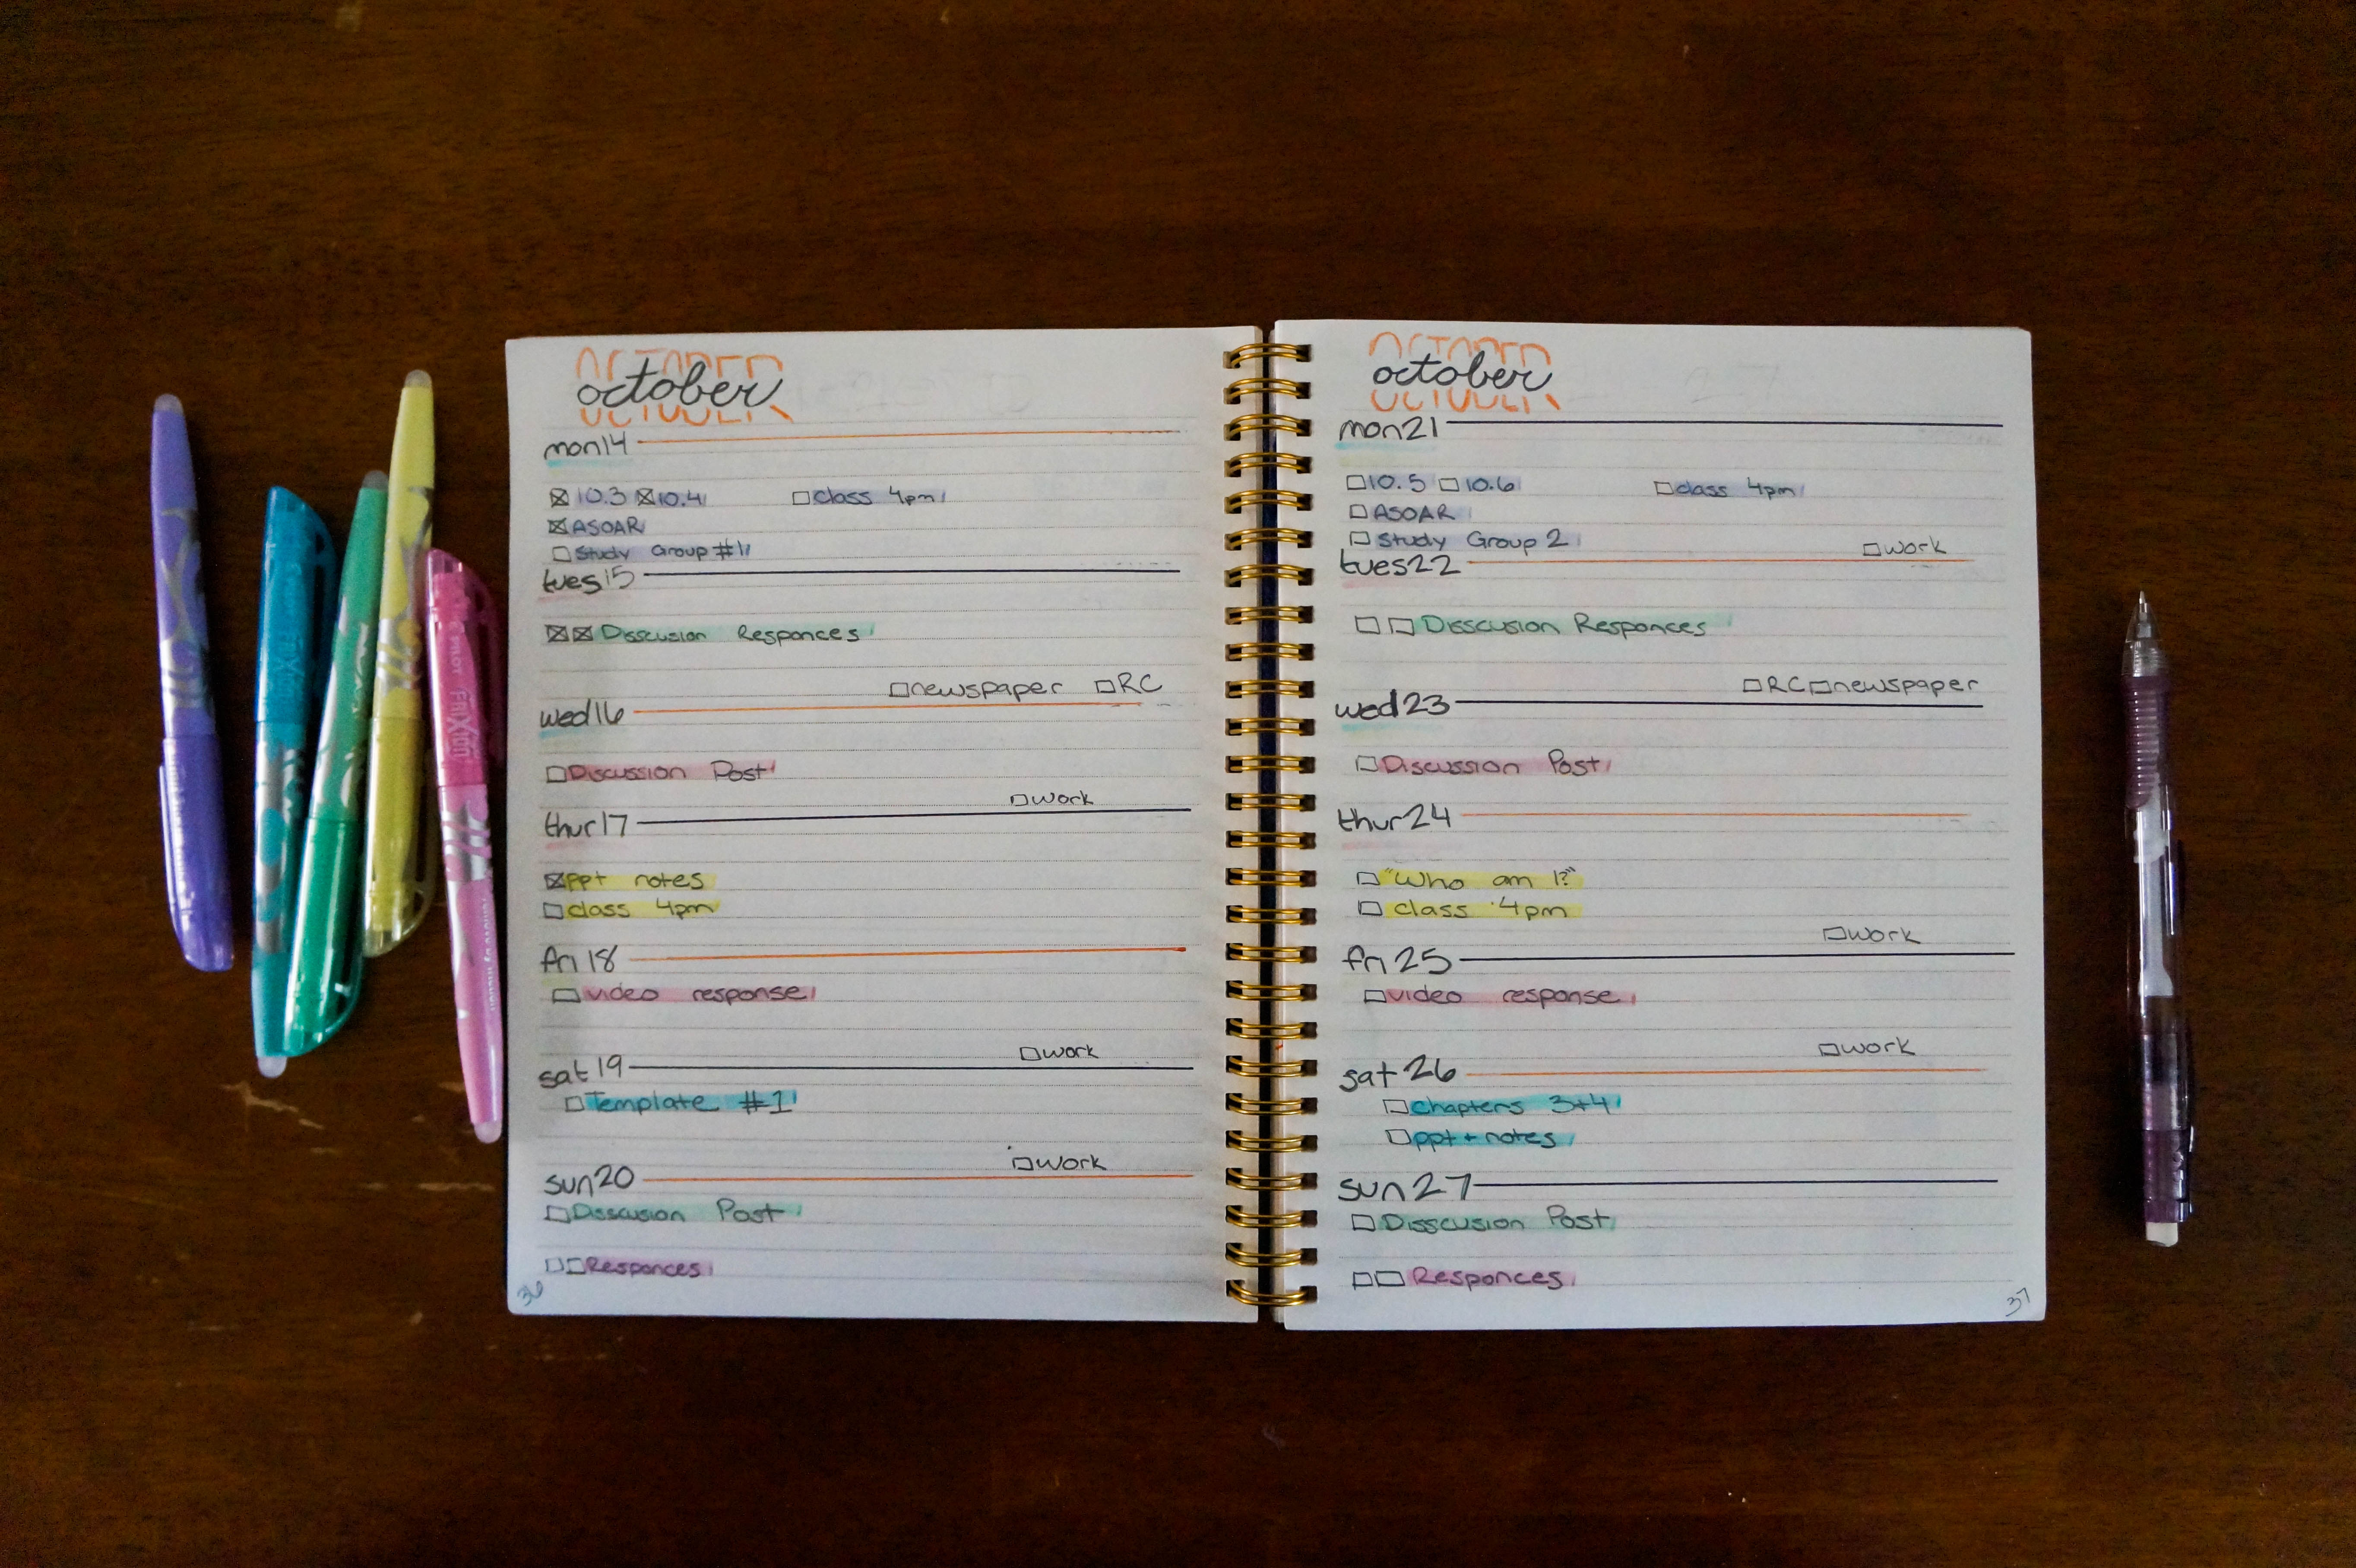 OCTOBER
october
mon14
☒10.3 ☒10.4 ☐class 4pm
☒ASOAR
☐Study Group #1
tues15
☒☒Disscusion Responces
☐newspaper ☐RC
wed16
☐Discussion Post
☐work
thur17
☒ppt notes
☐class 4pm
fri18
☐video response
☐work
sat19
☐Template #1
☐work
sun20
☐Disscusion Post
☐☐Responces
36
OCTOBER
october
mon21
☐10.5 ☐10.6 ☐class 4pm
☐ASOAR
☐Study Group 2
☐work
tues22
☐☐Disscusion Responces
☐RC☐newspaper
wed23
☐Discussion Post
thur24
☐"Who am I?"
☐class 4pm
☐work
fri25
☐video response
☐work
sat26
☐chapters 3+4
☐ppt + notes
sun27
☐Disscusion Post
☐☐Responces
37
FriXion